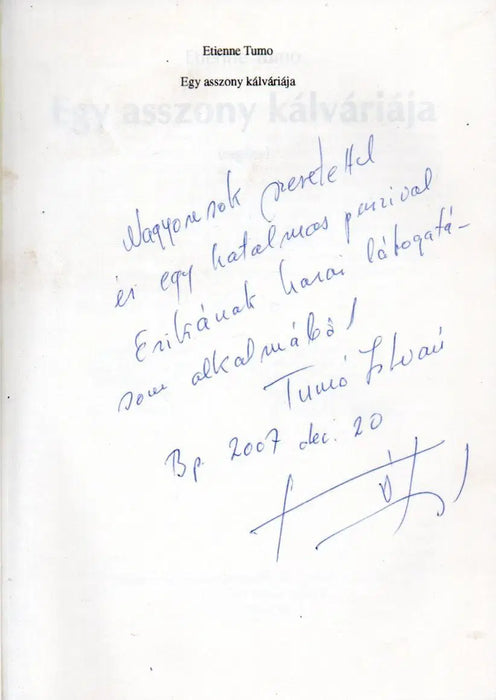 Etienne Tumo
Egy asszony kálváriája
Egy asszony kálváriája
Nagyon sok szeretettel
és egy hatalmas puszival
Erikának hazai látogatá-
som alkalmából
Tumó István
Bp. 2007 dec. 20